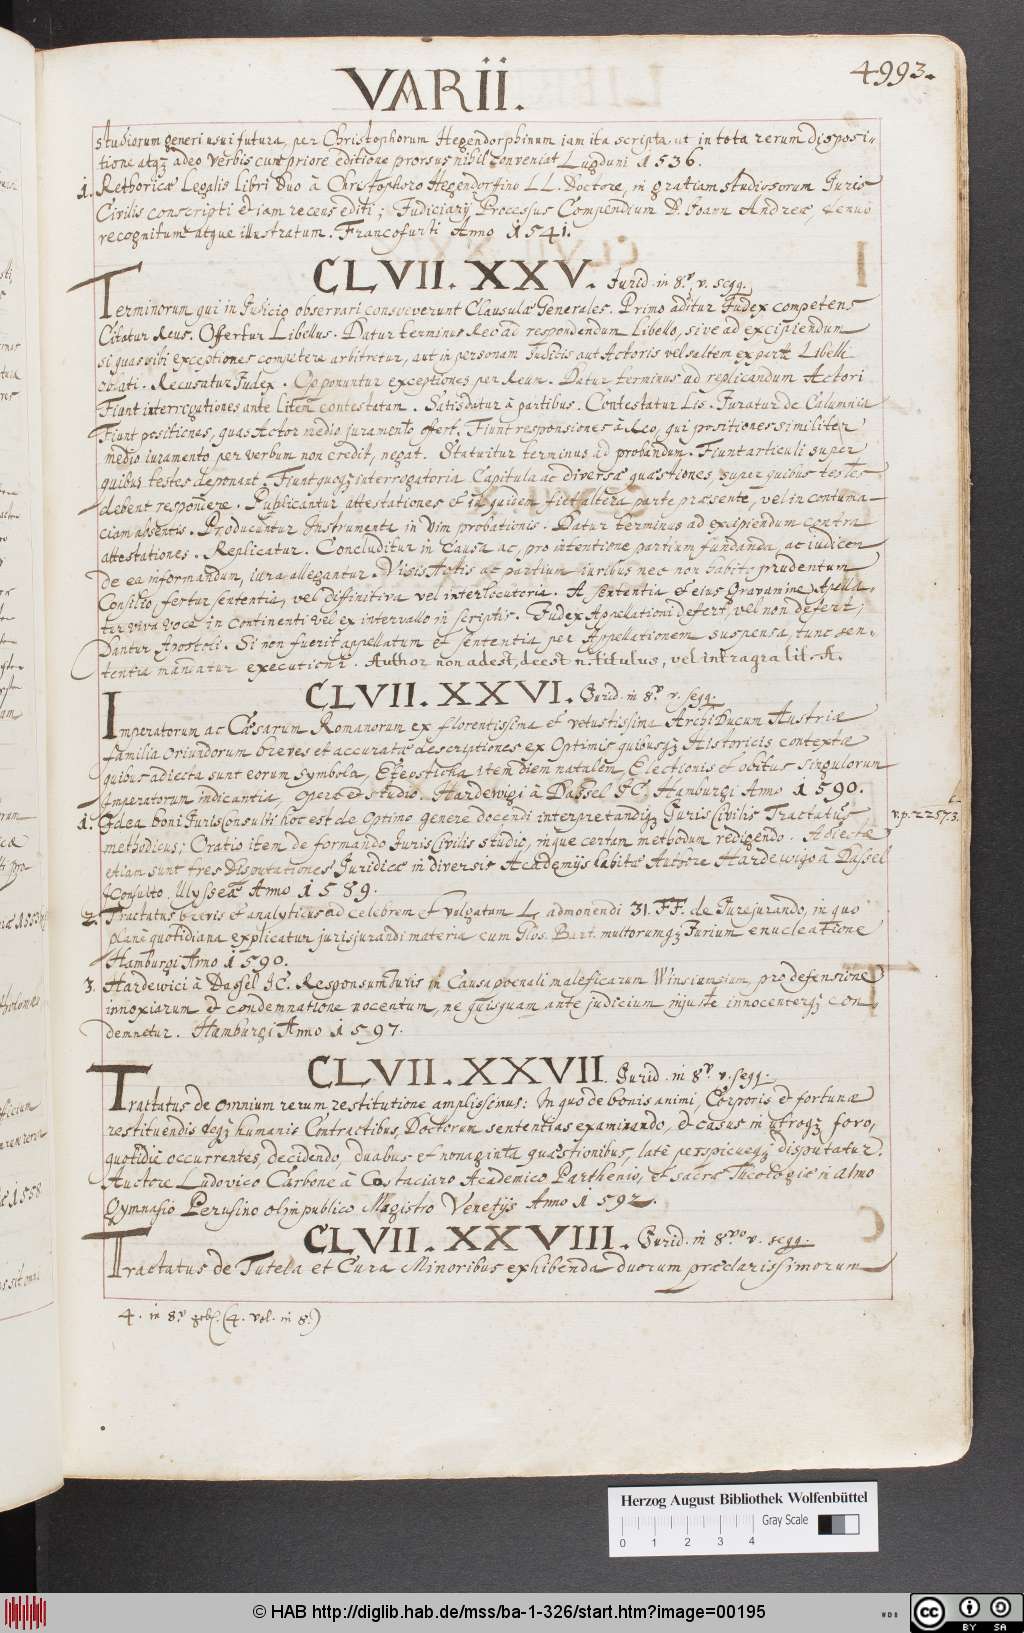 VARII.
4993.
studiorum generi usui futura, per Christophorum Hegendorphinum iam ita scripta ut in tota rerum disposi-
tione atqz adeo verbis cum priore editione prorsus nihil conveniat Lugduni 1536.
1. Rethoricæ Legalis Libri duo à Christophoro Hegendorffino LL. Doctore, in gratiam studiosorum Iuris
Civilis conscripti et iam recens editi; Iudiciarij Processus Compendium D. Ioann Andreæ, denuo
recognitum atque illustratum. Francofurti Anno 1541.
CLVII. XXV. Iurid. in 8.º v. seqq.
Terminorum qui in Iudicio observari consueverunt Clausulæ Generales. Primo aditur Iudex competens
Citatur Reus. Offertur Libellus. Datur terminus Reo ad respondendum Libello, sive ad excipiendum
si quas sibi exceptiones competere arbitretur, aut in personam Iudicis aut Actoris vel saltem ex parte Libelli
oblati. Recusatur Iudex. Opponuntur exceptiones per Reum. Datur terminus ad replicandum Actori
Fiunt interrogationes ante litem contestatam. Satisdatur à partibus. Contestatur Lis. Iuratur de Calumnia
Fiunt positiones, quas Actor medio juramento offert. Fiunt responsiones à Reo, qui positiones similiter
medio iuramento per verbum non credit, negat. Statuitur terminus ad probandum. Fiunt articuli super
quibus testes deponant. Fiunt quoqz interrogatoria Capitula ac diversæ quæstiones super quibus testes
debent respondere. Publicantur attestationes et id quidem fiet altera parte præsente, vel in contuma-
ciam absentis. Producuntur Instrumenta in vim probationis. Datur terminus ad excipiendum contra
attestationes. Replicatur. Concluditur in Causa ac, pro intentione partium fundanda, ac iudicem
de ea informandum, iura allegantur. Visis Actis ac partium iuribus nec non habito prudentum
Consilio, fertur sententia, vel diffinitiva vel interlocutoria. A sententia et eius gravamine Apella-
tur viva voce in continenti vel ex intervallo in scriptis. Iudex Appellationi defert, vel non defert,
Dantur Apostoli. Si non fuerit appellatum et sententia per Appellationem suspensa, tunc sen-
tentia mandatur executioni. Author non adest, deest n. titulus, vel intragra lit. A.
CLVII. XXVI. Iurid. in 8.º v. seqq.
Imperatorum ac Cæsarum Romanorum ex florentissima et vetustissima Archiducum Austriæ
familia oriundorum breves et accuratæ descriptiones ex Optimis quibusqz Historicis contextæ
quibus adiecta sunt eorum symbola, Eteosticha item diem natalem, Electionis et obitus singulorum
Imperatorum indicantia, opera et studio. Hardewigi à Dassel IC. Hamburgi Anno 1590.
v. p. 22573.
1. Idea boni Iurisconsulti hoc est de Optimo genere docendi interpretandiqz Iuris Civilis Tractatus
methodicus; Oratio item de formando Iuris Civilis studio, inque certam methodum redigendo. Adiectæ
etiam sunt tres Disputationes Iuridicæ in diversis Academijs habitæ Authore Hardewigo à Dassel
IConsulto. Ulysseæ Anno 1589.
2. Tractatus brevis et analyticus ad celebrem et vulgatam L. admonendi 31. FF. de Iurejurando, in quo
planè quotidiana explicatur jurisjurandi materia cum Glos. Bart. multorumqz Iurium enucleatione
Hamburgi Anno 1590.
3. Hardewici à Dassel IC. Responsum Iuris in Causa poenali maleficarum Winsiensium, pro defensione
innoxiarum et condemnatione nocentum, ne quisquam ante judicium injuste innocenterqz con-
demnetur. Hamburgi Anno 1597.
CLVII. XXVII. Iurid. in 8.º v. seqq.
Tractatus de omnium rerum restitutione amplissimus: In quo de bonis animi, Corporis et fortunæ
restituendis deqz humanis Contractibus, Doctorum sententias examinando, et casus in utroqz foro,
quotidiè occurrentes, decidendo, duabus et nonaginta quæstionibus, latè perspicueqz disputatur.
Auctore Ludovico Carbone à Costaciaro Academico Parthenio, et sacræ Theologiæ in almo
Gymnasio Perusino olim publico Magistro Venetijs Anno 1592.
CLVII. XXVIII. Iurid. in 8.vo v. seqq.
Tractatus de Tutela et Cura Minoribus exhibenda duorum præclarissimorum
4. in 8.º (4. vol. in 8.º)
Herzog August Bibliothek Wolfenbüttel
Gray Scale
0 1 2 3 4
© HAB http://diglib.hab.de/mss/ba-1-326/start.htm?image=00195
WDB
cc BY SA